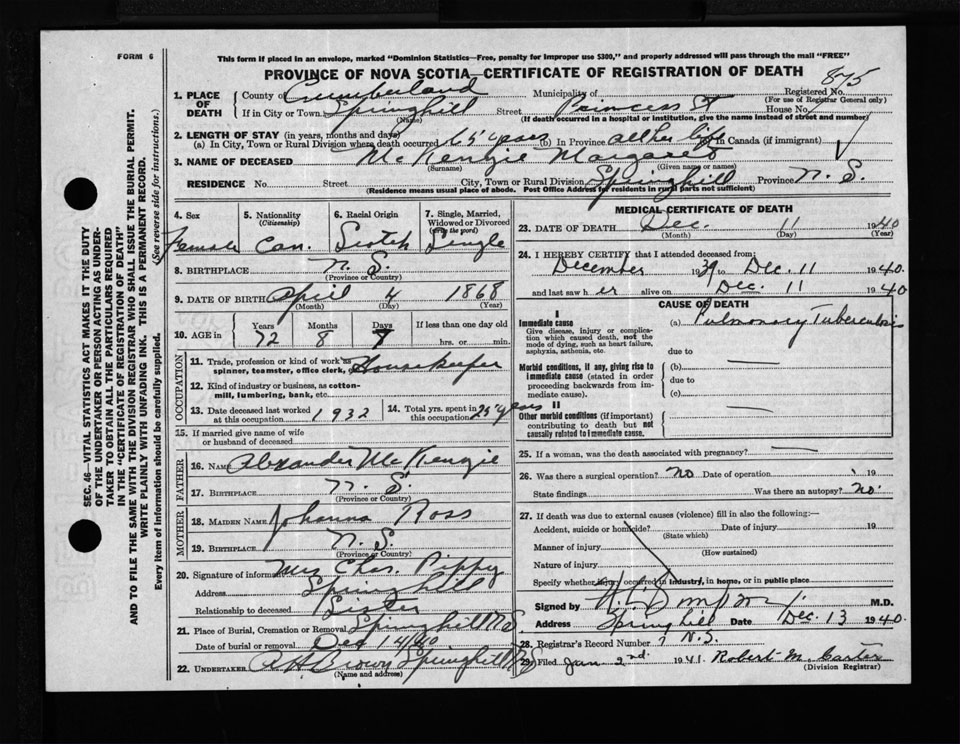 FORM 6
This form if placed in an envelope, marked "Dominion Statistics—Free, penalty for improper use $300," and properly addressed will pass through the mail "FREE"
PROVINCE OF NOVA SCOTIA—CERTIFICATE OF REGISTRATION OF DEATH
875
1. PLACE OF DEATH
County of Cumberland Municipality of Registered No.
(For use of Registrar General only)
If in City or Town Springhill Street Princess St House No.
(Name) (If death occurred in a hospital or institution, give the name instead of street and number)
2. LENGTH OF STAY (in years, months and days)
(a) In City, Town or Rural Division where death occurred 65 years (b) In Province all her life (c) In Canada (if immigrant)
3. NAME OF DECEASED McKenzie Margaret
(Surname) (Given name or names)
RESIDENCE No. Street City, Town or Rural Division Springhill Province N. S.
(Residence means usual place of abode. Post Office Address for residents in rural parts not sufficient)
SEC. 46—VITAL STATISTICS ACT MAKES IT THE DUTY
OF THE UNDERTAKER OR PERSON ACTING AS UNDER-
TAKER TO OBTAIN ALL THE PARTICULARS REQUIRED
IN THE "CERTIFICATE OF REGISTRATION OF DEATH"
AND TO FILE THE SAME WITH THE DIVISION REGISTRAR WHO SHALL ISSUE THE BURIAL PERMIT.
WRITE PLAINLY WITH UNFADING INK. THIS IS A PERMANENT RECORD.
Every item of information should be carefully supplied. (See reverse side for instructions.)
4. Sex Female
5. Nationality (Citizenship) Can.
6. Racial Origin Scotch
7. Single, Married, Widowed or Divorced (write the word) Single
8. BIRTHPLACE N. S.
(Province or Country)
9. DATE OF BIRTH April 4 1868
(Month) (Day) (Year)
10. AGE in Years 72 Months 8 Days 7 If less than one day old hrs. or min.
OCCUPATION
11. Trade, profession or kind of work as spinner, teamster, office clerk, etc. Housekeeper
12. Kind of industry or business, as cotton-mill, lumbering, bank, etc.
13. Date deceased last worked at this occupation 1932
14. Total yrs. spent in this occupation 25 years
15. If married give name of wife or husband of deceased
FATHER
16. NAME Alexander McKenzie
17. BIRTHPLACE N. S.
(Province or Country)
MOTHER
18. MAIDEN NAME Johanna Ross
19. BIRTHPLACE N. S.
(Province or Country)
20. Signature of informant Mrs Chas. Pippy
Address Springhill
Relationship to deceased Sister
21. Place of Burial, Cremation or Removal Springhill NS
Date of burial or removal Dec 14/40
22. UNDERTAKER A H Brown Springhill NS
(Name and address)
MEDICAL CERTIFICATE OF DEATH
23. DATE OF DEATH Dec. 11 1940
(Month) (Day) (Year)
24. I HEREBY CERTIFY that I attended deceased from:
December 1939 to Dec. 11 1940.
and last saw her alive on Dec. 11 1940
CAUSE OF DEATH
I
Immediate cause (a) Pulmonary Tuberculosis
Give disease, injury or complication which caused death, not the mode of dying, such as heart failure, asphyxia, asthenia, etc.
due to
Morbid conditions, if any, giving rise to immediate cause (stated in order proceeding backwards from immediate cause).
(b)
due to
(c)
II
Other morbid conditions (if important) contributing to death but not causally related to immediate cause.
25. If a woman, was the death associated with pregnancy? —
26. Was there a surgical operation? No Date of operation 19
State findings Was there an autopsy? No.
27. If death was due to external causes (violence) fill in also the following:—
Accident, suicide or homicide? Date of injury 19
(State which)
Manner of injury
(How sustained)
Nature of injury
Specify whether injury occurred in industry, in home, or in public place
Signed by M.D.
Address Springhill N.S. Date Dec. 13 1940
28. Registrar's Record Number
29. Filed Jan 2nd 1941. Robert M. Carter
(Division Registrar)